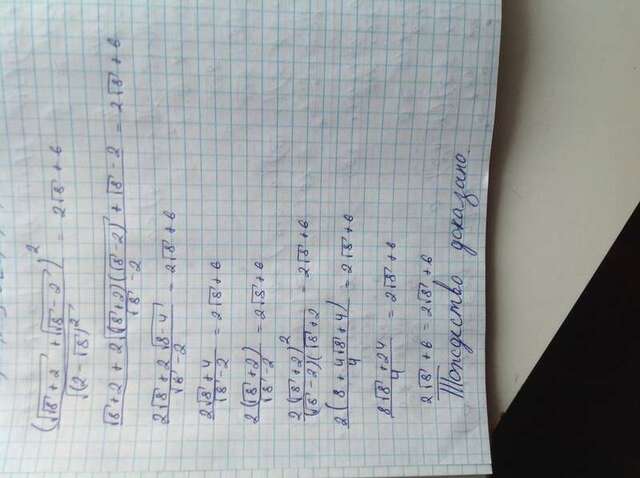 (√(√8 + 2) + √(√8 - 2))² / √(2 - √8)² = 2√8 + 6
√8 + 2 + 2√(√8 + 2)(√8 - 2) + √8 - 2 / √8 - 2 = 2√8 + 6
2√8 + 2√8-4 / √8 - 2 = 2√8 + 6
2√8 + 4 / √8 - 2 = 2√8 + 6
2(√8 + 2) / √8 - 2 = 2√8 + 6
2(√8 + 2)² / (√8 - 2)(√8 + 2 = 2√8 + 6
2(8 + 4√8 + 4) / 4 = 2√8 + 6
8√8 + 24 / 4 = 2√8 + 6
2√8 + 6 = 2√8 + 6
Тождество доказано.